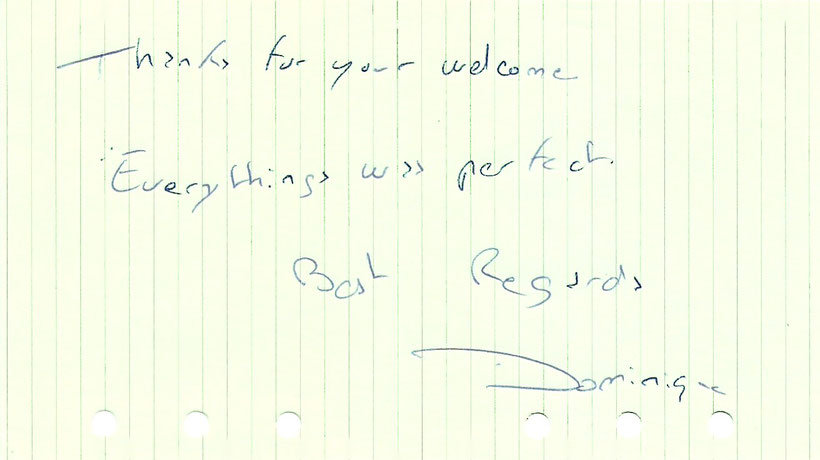 Thanks for your welcome
Everythings was perfect.
Best Regards
Dominique